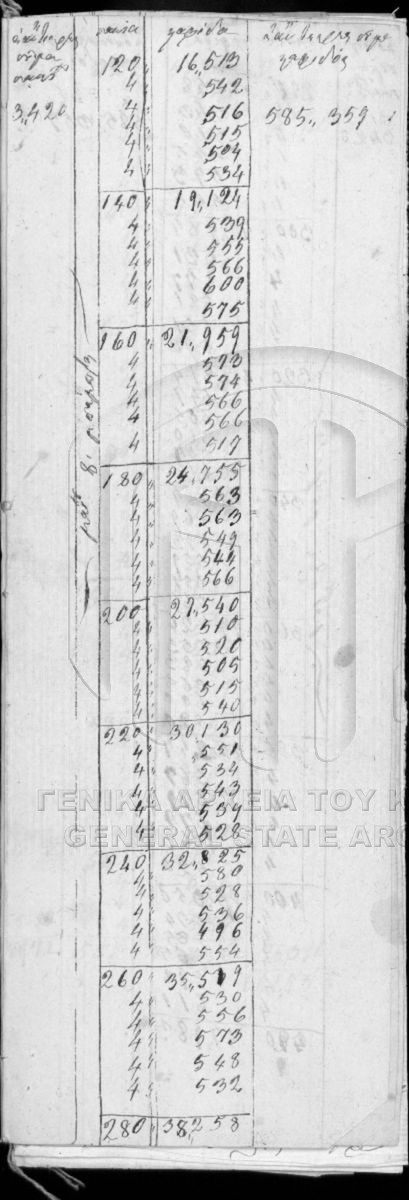 σακία
σαφίδα
120 „ 16„513
4 „ 542
3„420
4 „ 516
585„ 359
4 „ 515
4 „ 504
4 „ 534
140 „ 19„124
4 „ 539
4 „ 555
4 „ 566
4 „ 600
4 „ 575
160 „ 21„959
4 „ 573
4 „ 574
4 „ 566
4 „ 566
4 „ 517
180 „ 24„755
4 „ 563
4 „ 563
4 „ 549
4 „ 544
4 „ 566
200 „ 27„540
4 „ 510
4 „ 520
4 „ 505
4 „ 515
4 „ 540
220 „ 30„130
4 „ 551
4 „ 534
4 „ 543
4 „ 539
4 „ 528
ΓΕΝΙΚΑ ΑΡΧΕΙΑ ΤΟΥ Κ
GENERAL STATE ARC
240 „ 32„825
4 „ 580
4 „ 528
4 „ 536
4 „ 496
4 „ 554
260 „ 35„519
4 „ 530
4 „ 556
4 „ 573
4 „ 548
4 „ 532
280 „ 38„258